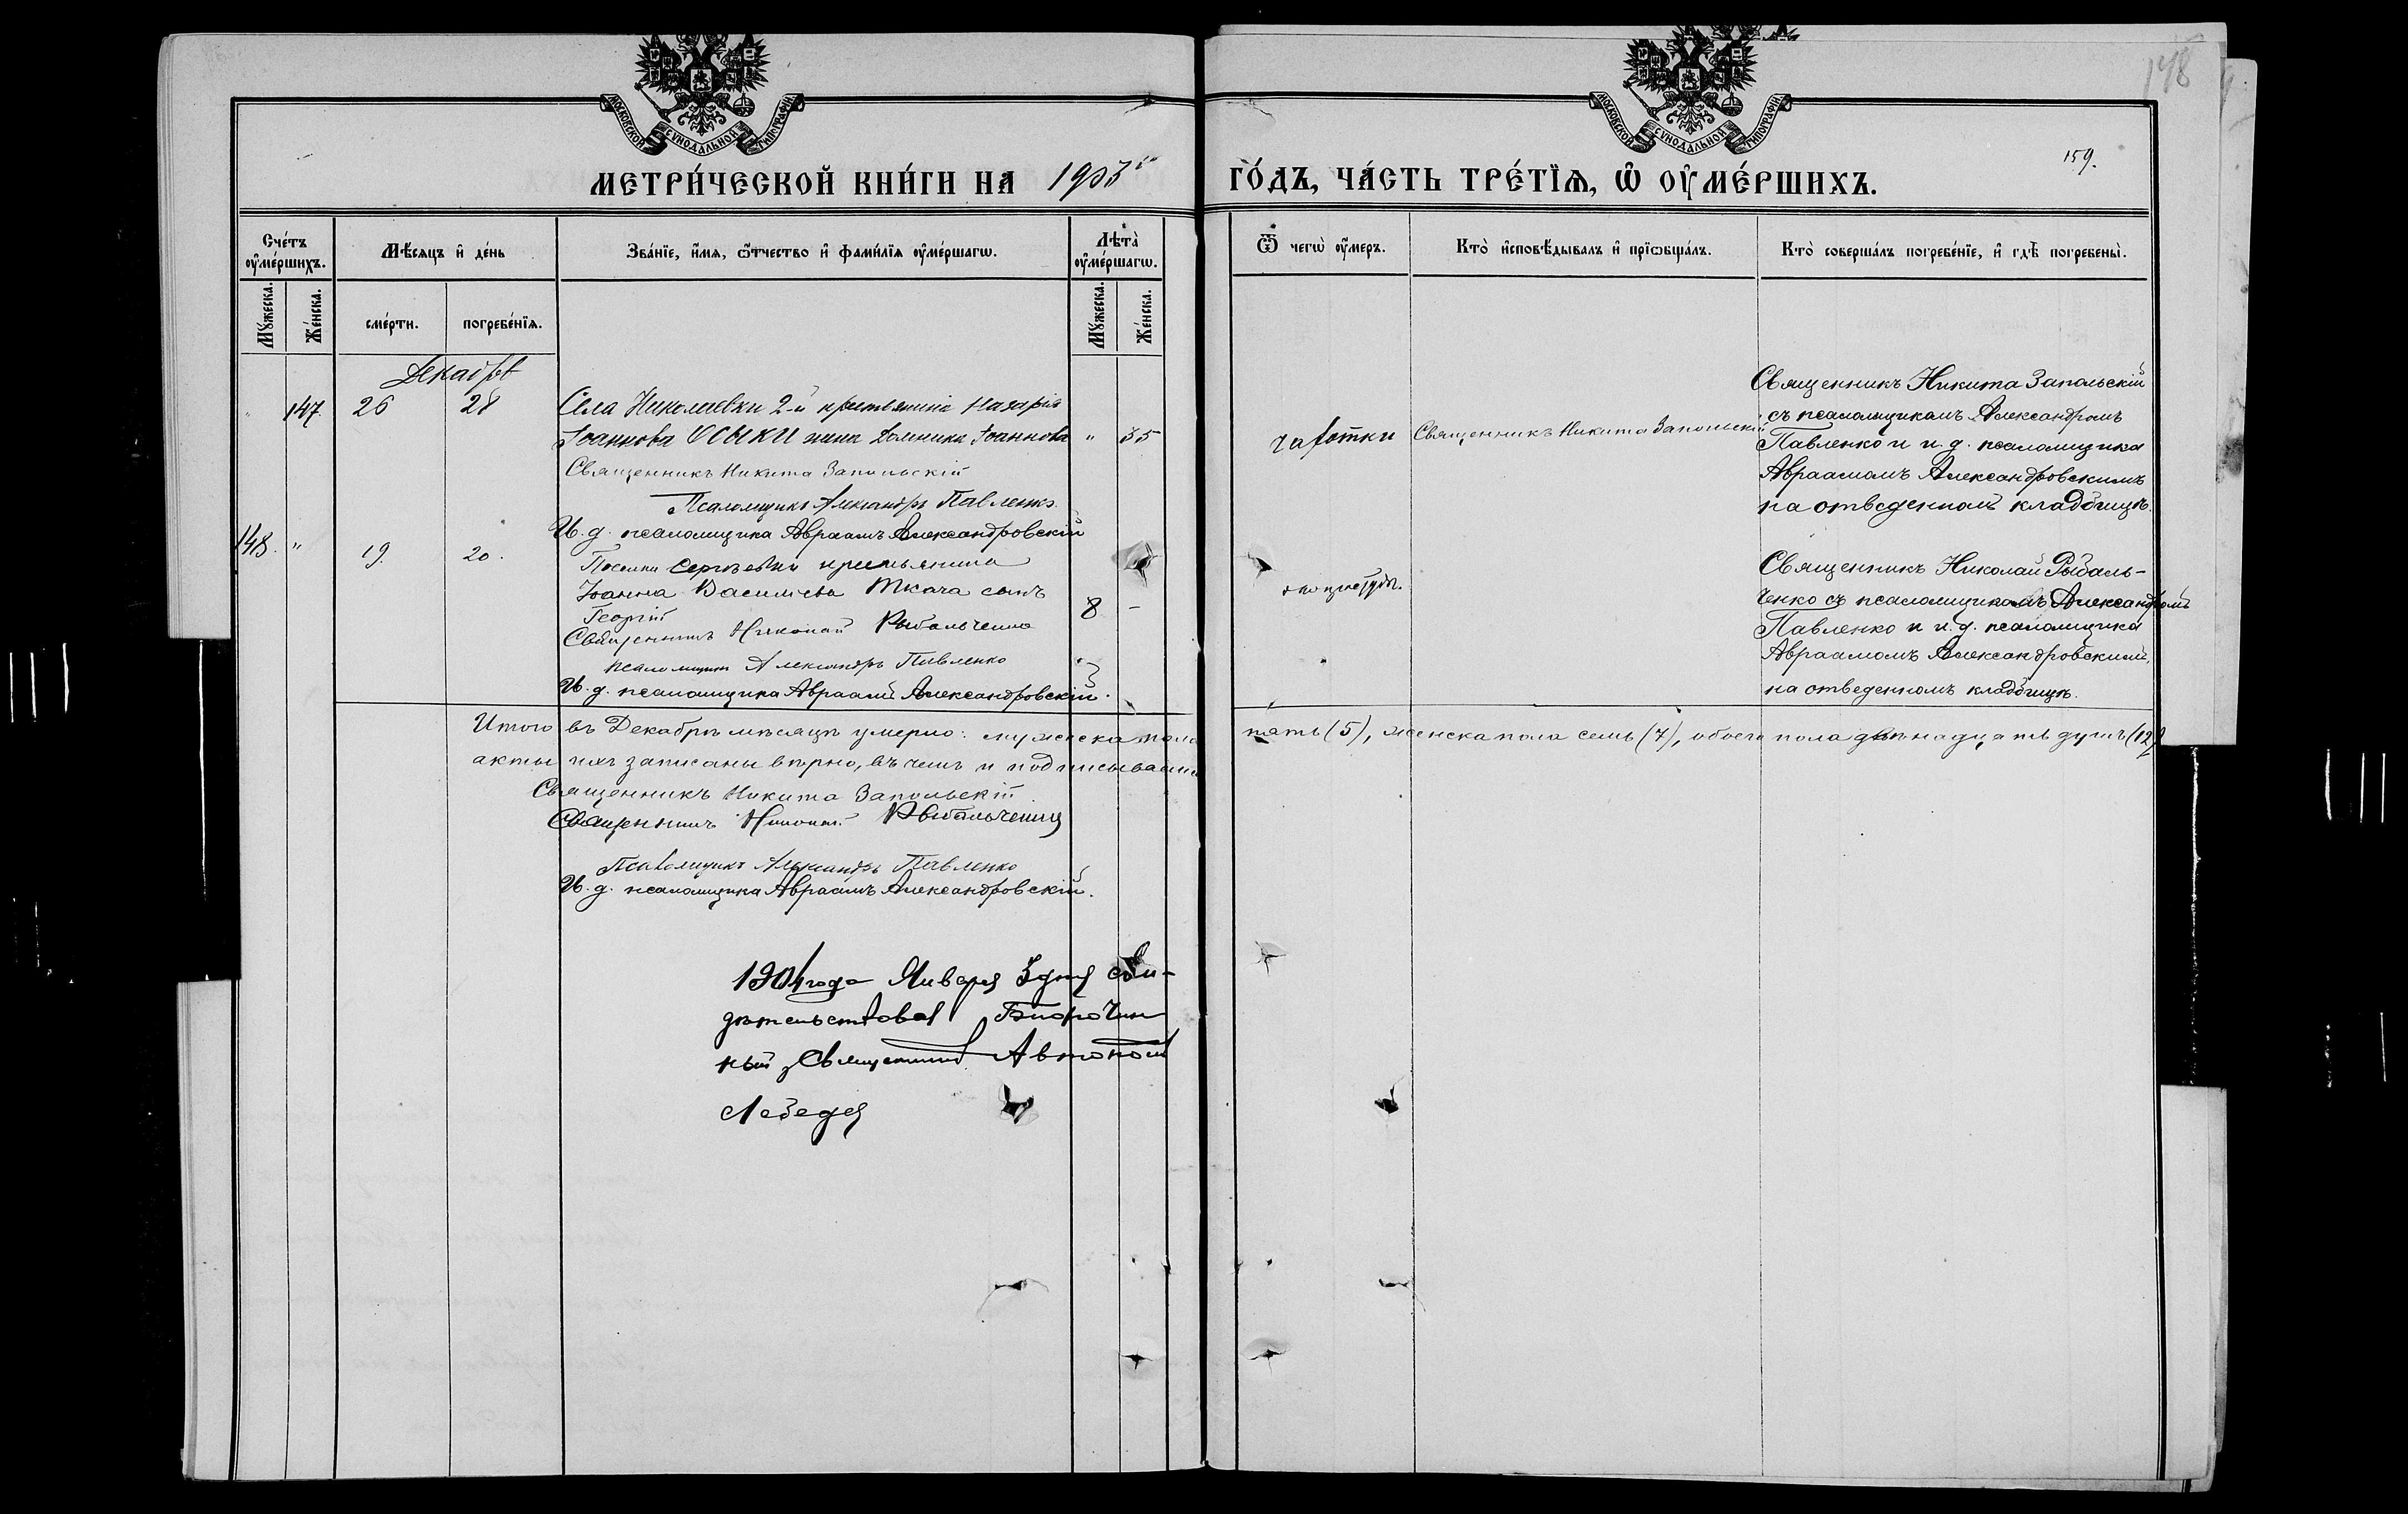 148
159.
МОСКОВСКОЙ СѴНОДАЛЬНОЙ ТИПОГРАФІИ.
МОСКОВСКОЙ СѴНОДАЛЬНОЙ ТИПОГРАФІИ.
МЕТРИ́ЧЕСКОЙ КНИ́ГИ НА 1903й ГО́ДЪ, ЧА́СТЬ ТРЕ́ТЇѦ, Ѡ҆ ОУ҆МЕ́РШИХЪ.
Сче́тъ оу҆ме́ршихъ.
Мꙋ́жеска.
Же́нска.
Мѣ́сѧцъ и҆ де́нь
сме́рти.
погребе́нїѧ.
Зва́нїе, и҆́мѧ, ѻ҆́тчество и҆ фами́лїѧ оу҆ме́ршагѡ.
Лѣ́та оу҆ме́ршагѡ.
Мꙋ́жеска.
Же́нска.
Ѿ чегѡ̀ оу҆́меръ.
Кто̀ и҆сповѣ́дывалъ и҆ прїѡбща́лъ.
Кто̀ соверша́лъ погребе́нїе, и҆ гдѣ̀ погребены̀.
Декабрь
" 147. 26 28
Села Николаевки 2-й крестьянина Назарія
Іоаннова Осыки жена Домника Іоаннова " 35
Священникъ Никита Запольскій
Псаломщикъ Александръ Павленко.
И. д. псаломщика Авраамъ Александровскій
чахотки
Священникъ Никита Запольскій
Священникъ Никита Запольскій
съ псаломщикомъ Александромъ
Павленко и и. д. псаломщика
Авраамомъ Александровскимъ
на отведенномъ кладбищѣ.
148. " 19. 20.
Поселка Сергѣевки крестьянина
Іоанна Васильева Ткача сынъ
Георгій 8 -
Священникъ Николай Рыбальченко
псаломщикъ Александръ Павленко
И. д. псаломщика Авраамъ Александровскій.
Священникъ Николай Рыбаль-
ченко съ псаломщикомъ Александромъ
Павленко и и. д. псаломщика
Авраамомъ Александровскимъ,
на отведенномъ кладбищѣ.
Итого въ Декабрѣ мѣсяцѣ умерло: мужеска пола пять (5), женска пола семь (7), обоего пола двѣнадцать душъ (12)
акты ихъ записаны вѣрно, въ чемъ и подписываемся
Священникъ Никита Запольскій
Священникъ Николай Рыбальченко
Псаломщикъ Александръ Павленко
И. д. псаломщика Авраамъ Александровскій.
1904 года Января 3 дня сви-
дѣтельствовалъ Благочин-
ный Священникъ Автономъ
Лебедев